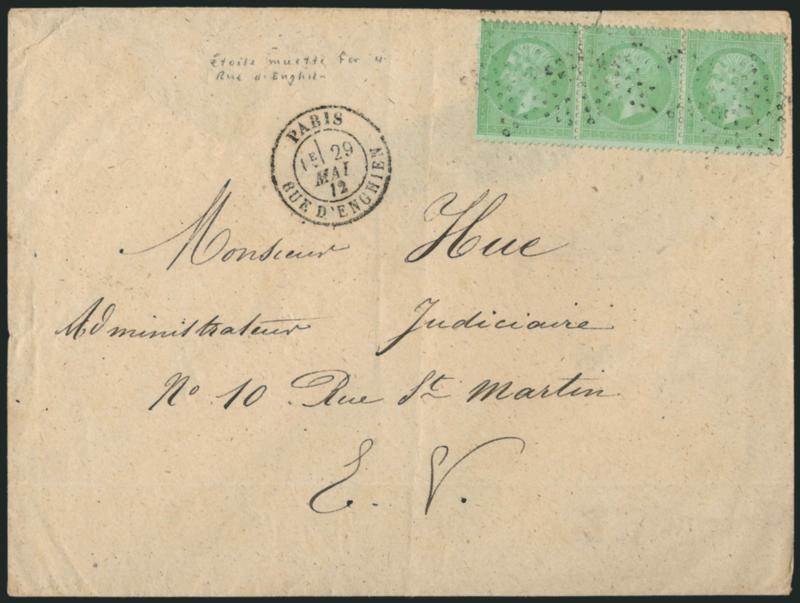 Étoile muette
Rue d'Enghien
PARIS
1E 29
MAI
72
RUE D'ENGHIEN
Monsieur Hue
Administrateur Judiciaire
No 10 Rue St Martin
E. V.